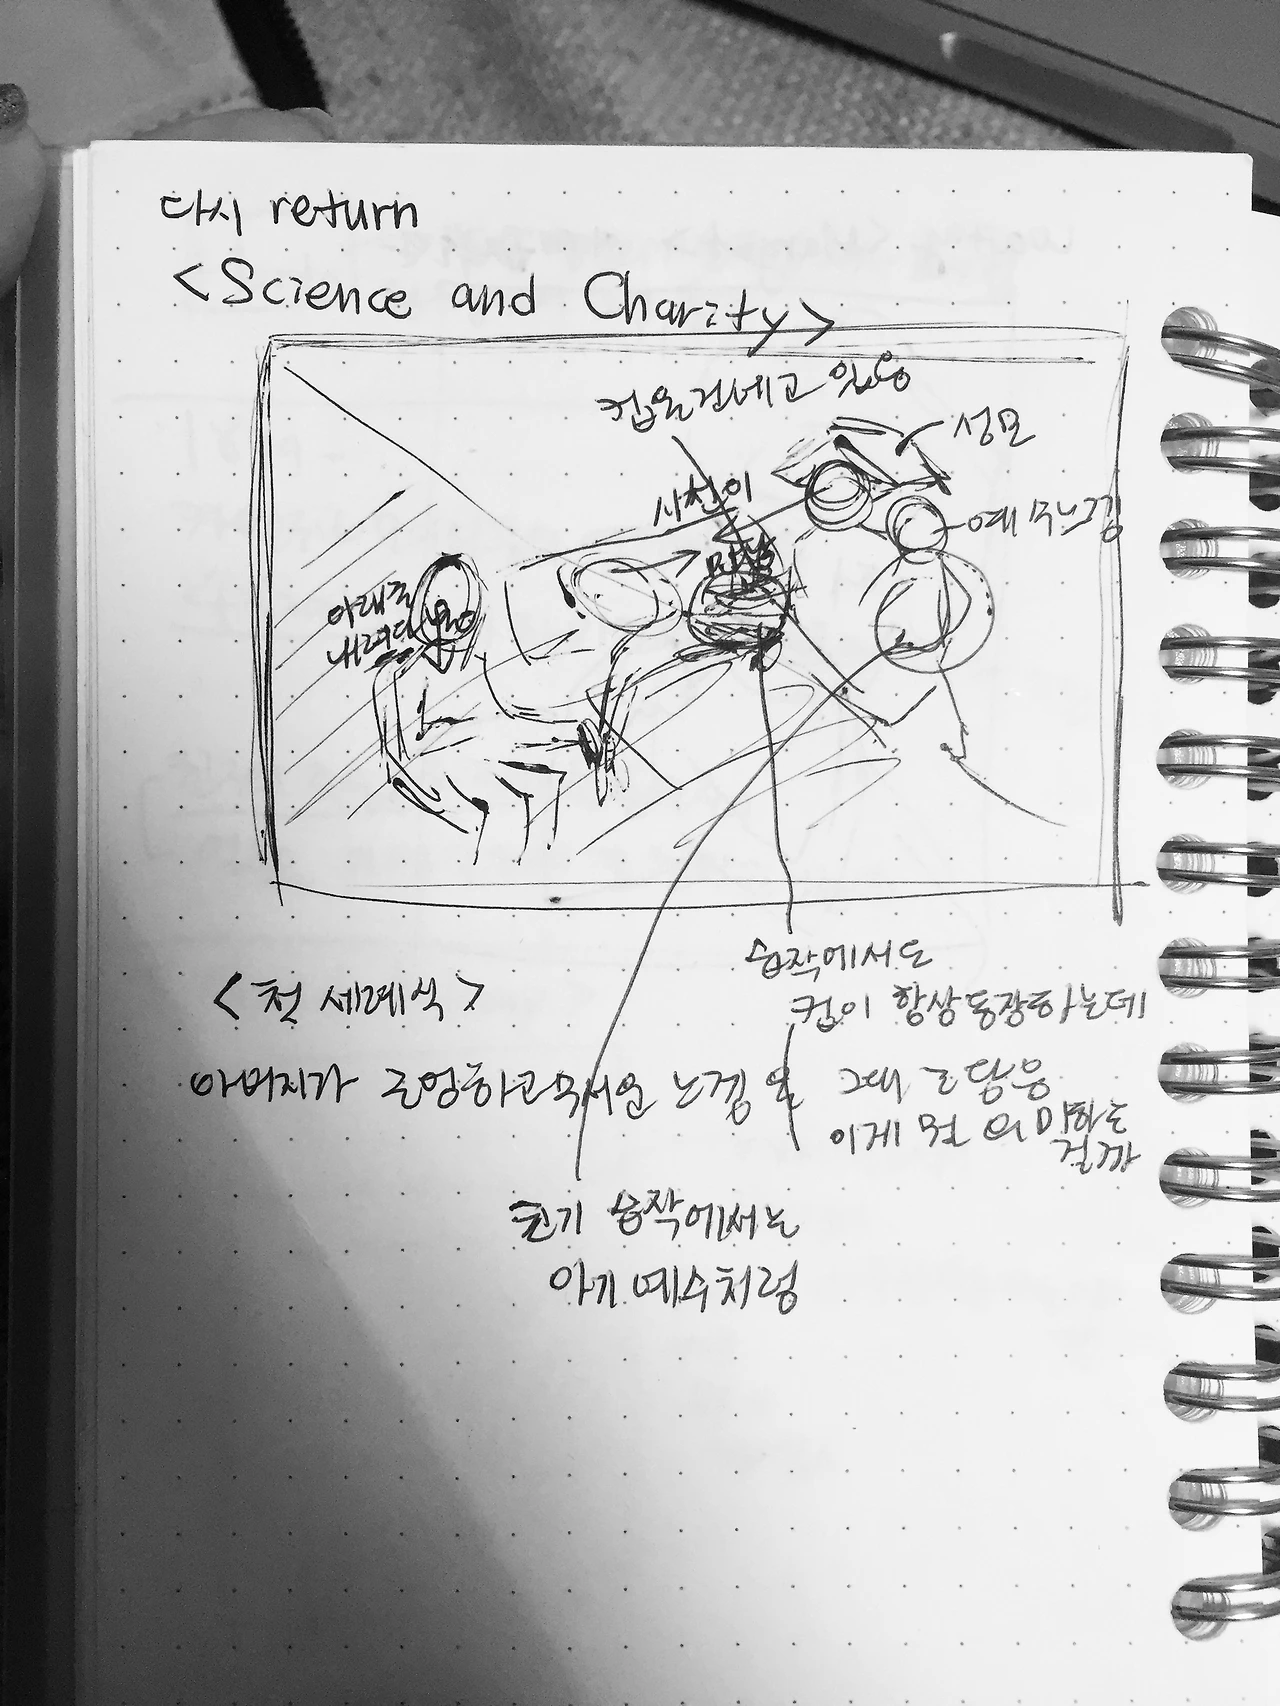 다시 return
<Science and Charity>
컵을 건네고 있음
성모
시선이
예수느낌
아래를
내려다
습작에서도
<첫 세례식>
컵이 항상 등장하는데
아버지가 근엄하고 무서운 느낌을
그때 그 닮음
이게 뭘 의미하는
걸까
초기 습작에서는
아기 예수처럼